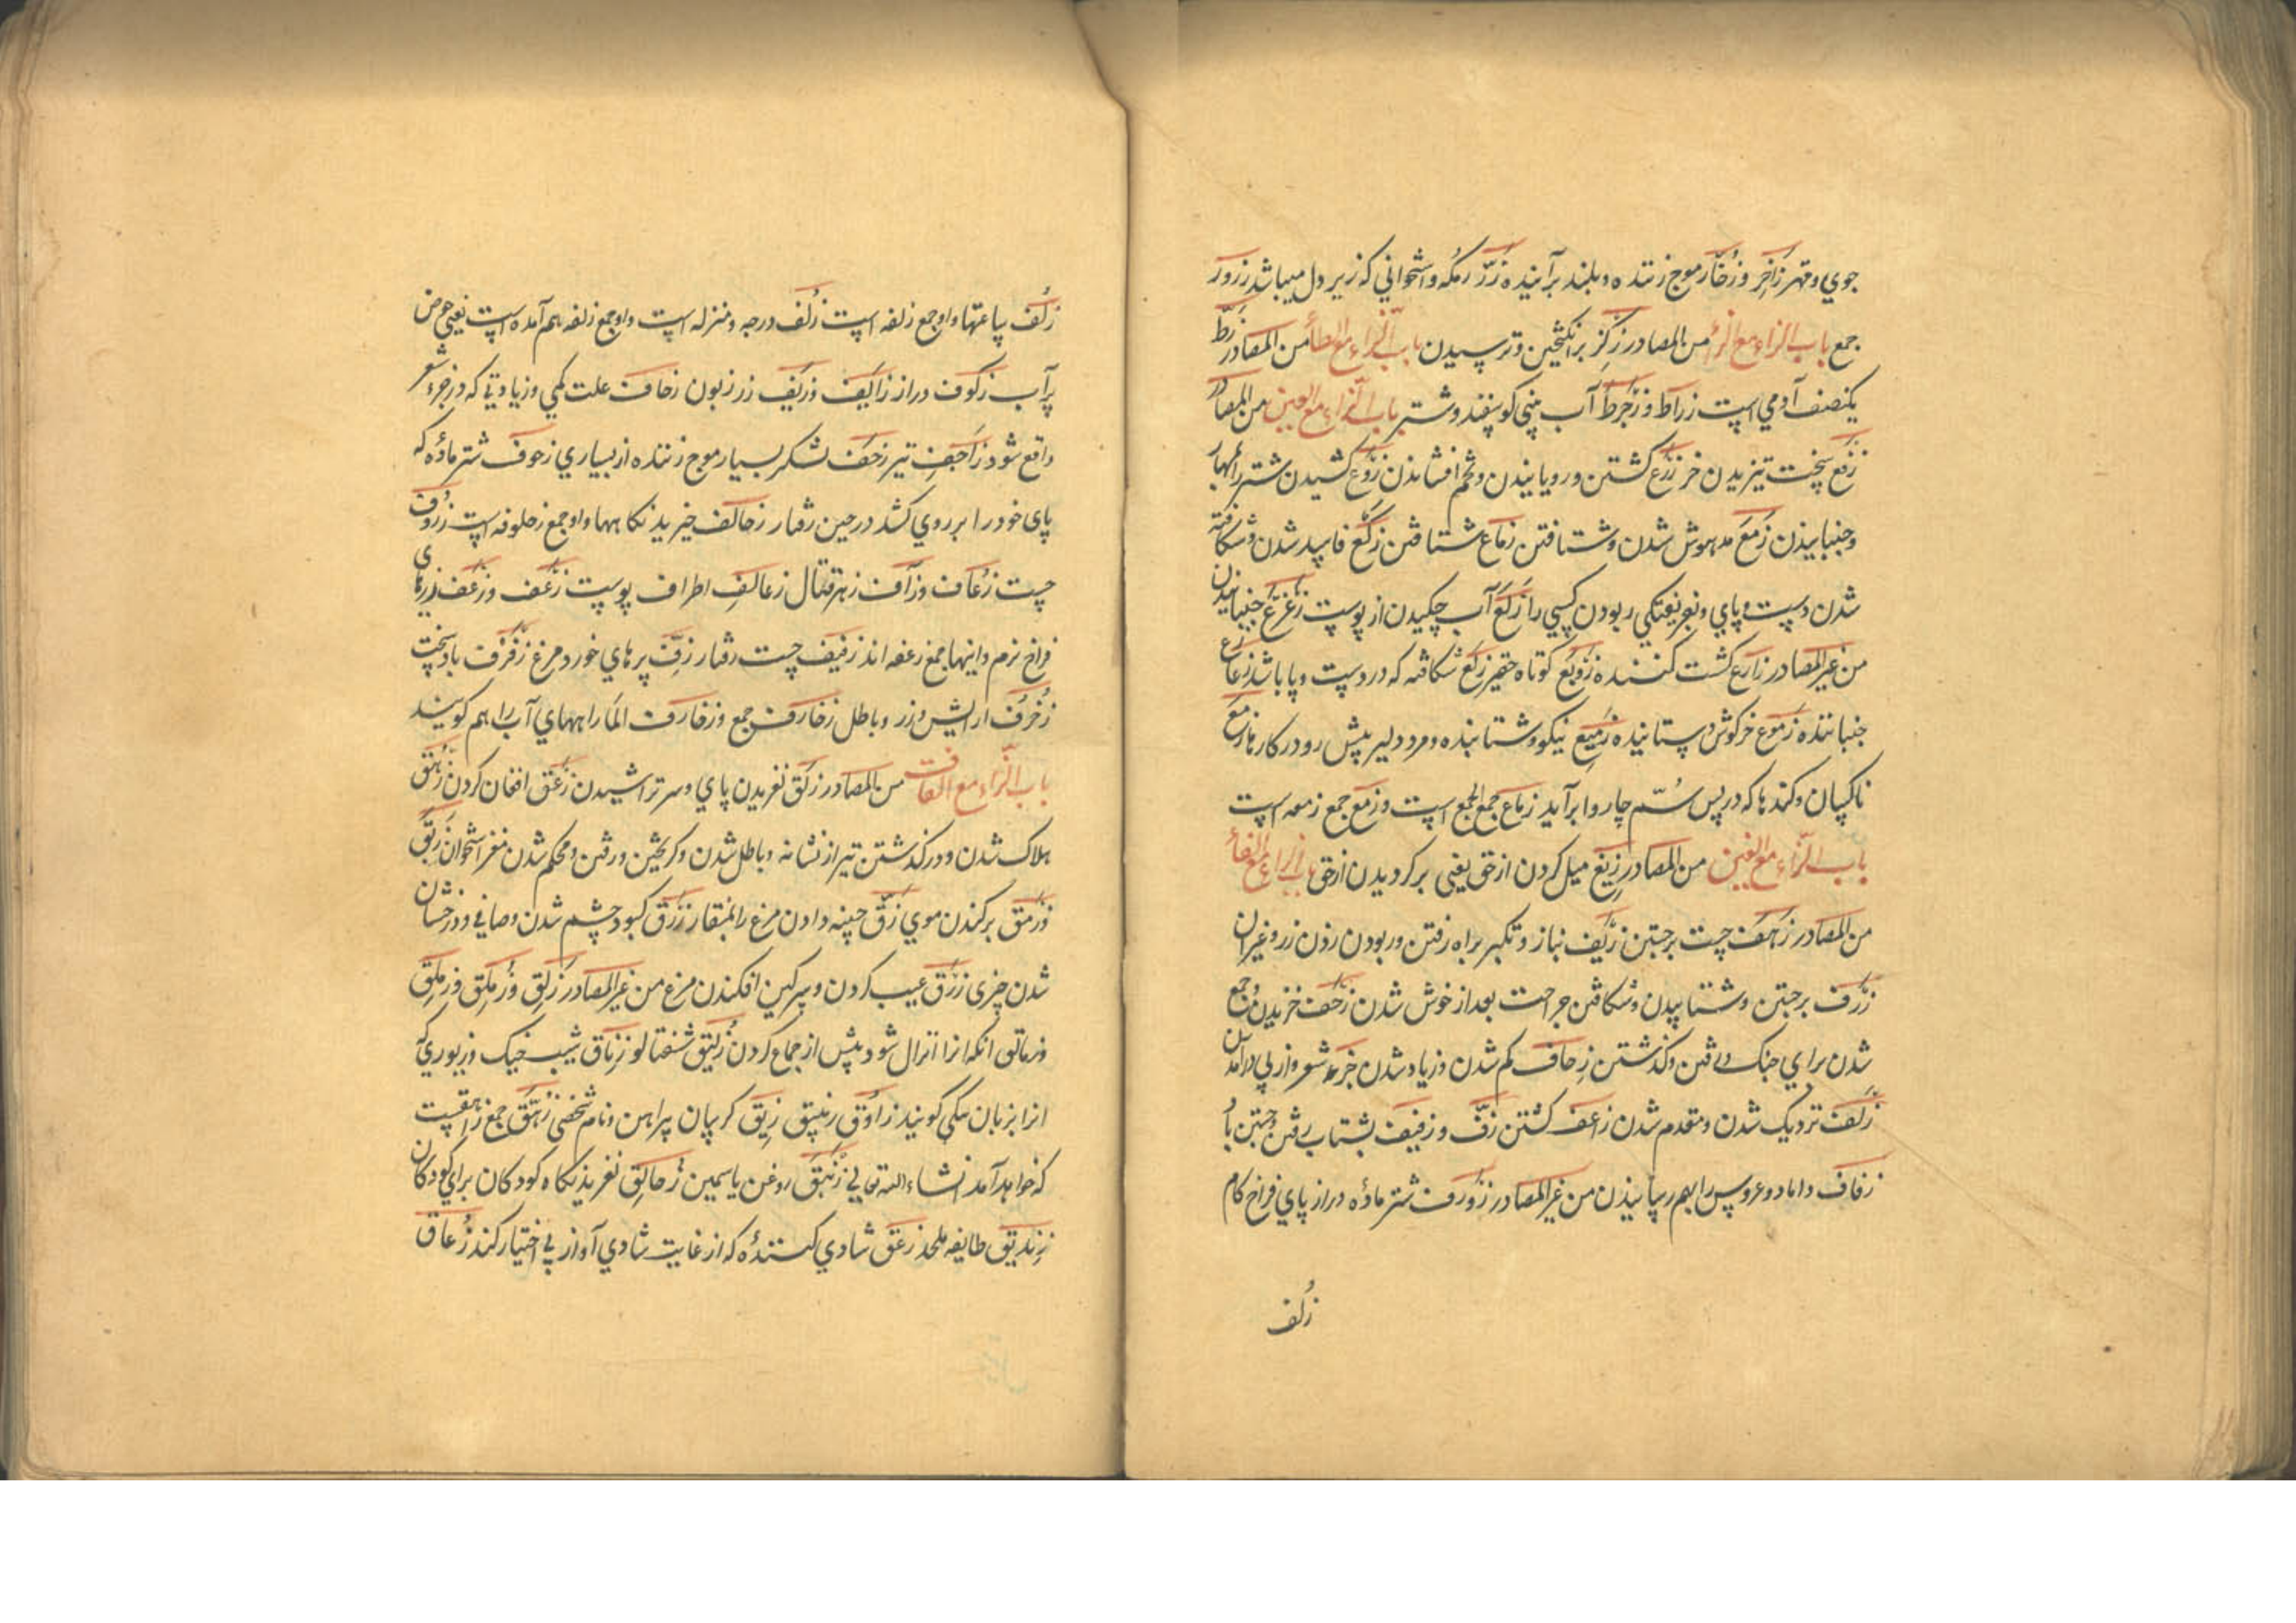 جوي و قهر زاخر و زخّار موج زننده و بلند برآینده زرّ رمکه و استخواني که زیر دل میباشد زرور
جمع باب الزاء مع الزاء من المصادر زکز برانگیختن و ترسیدن باب الزاء مع الطاء من المصادر زطّ
یکنصف آدمي است زراط و زخرط آب بیني کوسفند و شتر باب الزاء مع العین من المصادر
زقع سخت تیزیدن خر زرع کشتن و رویانیدن و تخم افشاندن زوع کشیدن شتر را بمهار
و جنبانیدن زمع مدهوش شدن و شتافتن زماع شتافتن زلع فاسد شدن و شکافته
شدن دست و پاي و بفریفتکي ربودن کسي را زلع آب چکیدن از پوست زعزع جنبانیدن
من غیر المصادر زارع کشت کننده زوبع کوتاه حقیر زلع شکافته که در دست و پا باشد زعزاع
جنباننده زموع خرکوش شتابنده زمیع نیکو و شتابنده و مرد دلیر پیش رو در کارها زمع
ناکسان و کمندها که در پس سم چاروا برآید زماع جمع الجمع است و زمع جمع زمعه است
باب الزّاء مع الغین من المصادر زیغ میل کردن از حق یعني برکردیدن از حق باب الزاء مع الفاء
من المصادر زهف چست برجستن زیف بناز و تکبر براه رفتن و ربودن زدن زر و غیر ان
زرف برجستن و شتابیدن و شکافتن جراحت بعد از خوش شدن زحف خزیدن و جمع
شدن براي جنک و رفتن و کذشتن زحاف کم شدن و زیاد شدن جزء شعر و از پي درآمدن
زلف نزدیک شدن و متقدم شدن زاعف کشتن زفّ و زفیف بشتاب رفتن و جستن باد
زفاف داماد و عروس را بهم رسانیدن من غیر المصادر زورف شتر ماده دراز پاي فراخ کام
زلف
زلف ساعتها و او جمع زلفه است زلف درجه و منزله است و او جمع زلفه هم آمده است یعني حوض
پرآب زکوف دراز زایف و زیف زر زبون زحاف علت کمي و زیادتي که در جزء شعر
واقع شود زاحف تیر زحف لشکر بسیار موج زننده از بسیاري زحوف شتر ماده که
پاي خود را بر روي کشد در حین رفتار زحالف خیزیدنکاهها و او جمع زحلوفه است زروف
چست زعاف و زاف زهر قتال زعالف اطراف پوست زغف و زغف زرهاي
فراخ نرم و اینها جمع زغفه اند زفیف چست رفتار زفّ پرهاي خورد مرغ زفزف باد سخت
زخرف ارایش و زر و باطل زخارف جمع و زخارف الماء راههاي آب را هم کویند
باب الزّاء مع القاف من المصادر زلق لغزیدن پاي و سر تراشیدن زعق افغان کردن زهق
هلاک شدن و درکذشتن تیر از نشانه و باطل شدن و کریختن و رفتن و محکم شدن مغز استخوان زبق
و زمق برکندن موي زقّ چینه دادن مرغ را بمنقار زرق کبود چشم شدن و صافي و درخشان
شدن چیزي زرق عیب کردن و سرکین افکندن مرغ من غیر المصادر زلق و زملق و زملّق
و زمالق انکه او را انزال شود پیش از جماع کردن زلیق شفتالو زرناق شیب خیک و زیوري که
انرا بزبان مکي کویند زاوق زیبق زیق کریبان پیراهن و نام شخصي زهق جمع زاهقست
که خواهد آمد انشاء الله تعالي زنبق روغن یاسمین زحالق لغزیدنکاه کودکان براي کودکان
زندیق طایفه ملحد زعق شادي کننده که از غایت شادي آواز بي اختیار کند زعاق